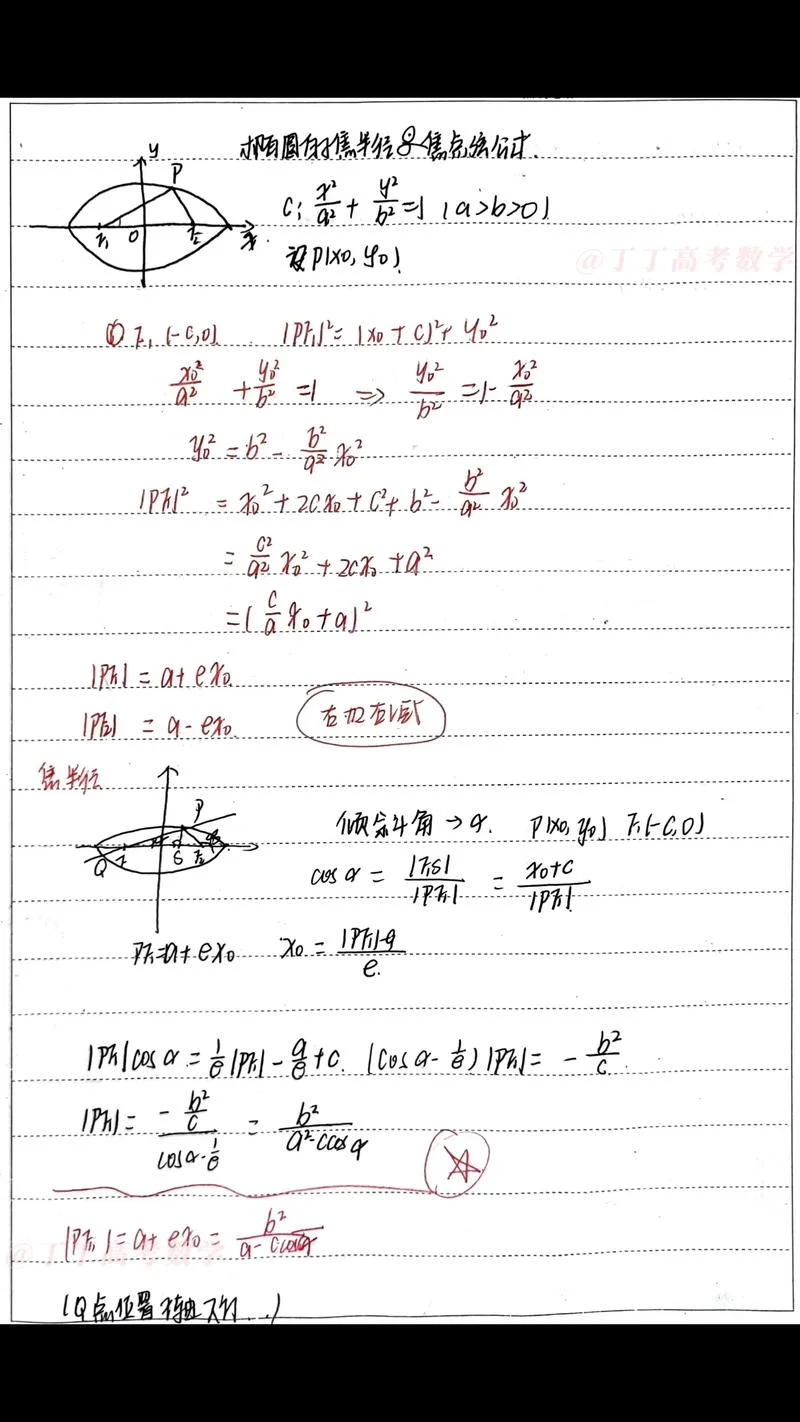 椭圆的焦半径及焦点弦公式.
y
P
C: x²/a² + y²/b² = 1 (a>b>0)
F₁ O F₂ x
设P(x₀, y₀)
@丁丁高考数学
① F₁ (-c,0) |PF₁|² = (x₀ + c)² + y₀²
x₀²/a² + y₀²/b² = 1 ⇒ y₀²/b² = 1 - x₀²/a²
y₀² = b² - b²/a² x₀²
|PF₁|² = x₀² + 2cx₀ + c² + b² - b²/a² x₀²
= c²/a² x₀² + 2cx₀ + a²
= (c/a x₀ + a)²
|PF₁| = a + ex₀
|PF₂| = a - ex₀
左加右减
焦半径
P
Q F₁ S F₂
倾斜角→α. P(x₀, y₀) F₁(-c,0)
cosα = |F₁S|/|PF₁| = x₀+c/|PF₁|
PF₁=a+ex₀ x₀ = |PF₁|-a/e
|PF₁|cosα = 1/e|PF₁| - a/e + c. (cosα - 1/e)|PF₁| = - b²/c
|PF₁| = - b²/c / cosα - 1/e = b²/a²-ccosα
|PF₁| = a + ex₀ = b²/a-ccosα
@丁丁高考数学
(Q点位置